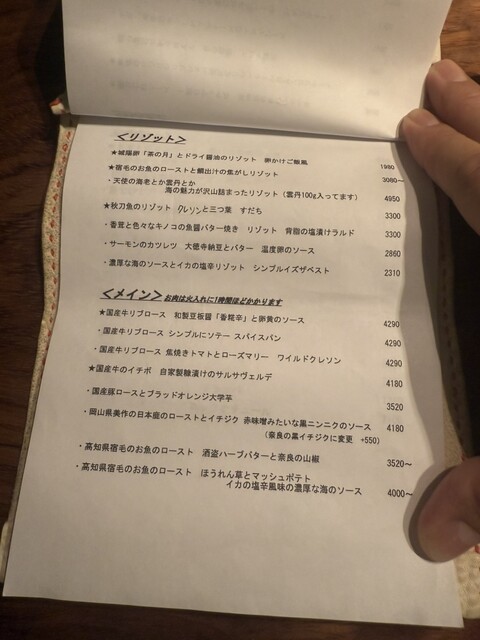 ＜リゾット＞
★城陽卵「茶の月」とドライ醤油のリゾット 卵かけご飯風 1980
★宿毛のお魚のローストと鯛出汁の焦がしリゾット 3080～
・天使の海老とか雲丹とか
海の魅力が沢山詰まったリゾット（雲丹100g入ってます） 4950
★秋刀魚のリゾット クレソンと三つ葉 すだち 3300
・香茸と色々なキノコの魚醤バター焼き リゾット 背脂の塩漬けラルド 3300
・サーモンのカツレツ 大徳寺納豆とバター 温度卵のソース 2860
・濃厚な海のソースとイカの塩辛リゾット シンプルイズザベスト 2310
＜メイン＞お肉は火入れに1時間ほどかかります
★国産牛リブロース 和製豆板醤「香糀辛」と卵黄のソース 4290
・国産牛リブロース シンプルにソテー スパイスパン 4290
・国産牛リブロース 焦焼きトマトとローズマリー ワイルドクレソン 4290
★国産牛のイチボ 自家製糠漬けのサルサヴェルデ 4180
・国産豚ロースとブラッドオレンジ大学芋 3520
・岡山県美作の日本鹿のローストとイチジク 赤味噌みたいな黒ニンニクのソース 4180
（奈良の黒イチジクに変更 +550）
・高知県宿毛のお魚のロースト 酒盗ハーブバターと奈良の山椒 3520～
・高知県宿毛のお魚のロースト ほうれん草とマッシュポテト
イカの塩辛風味の濃厚な海のソース 4000～